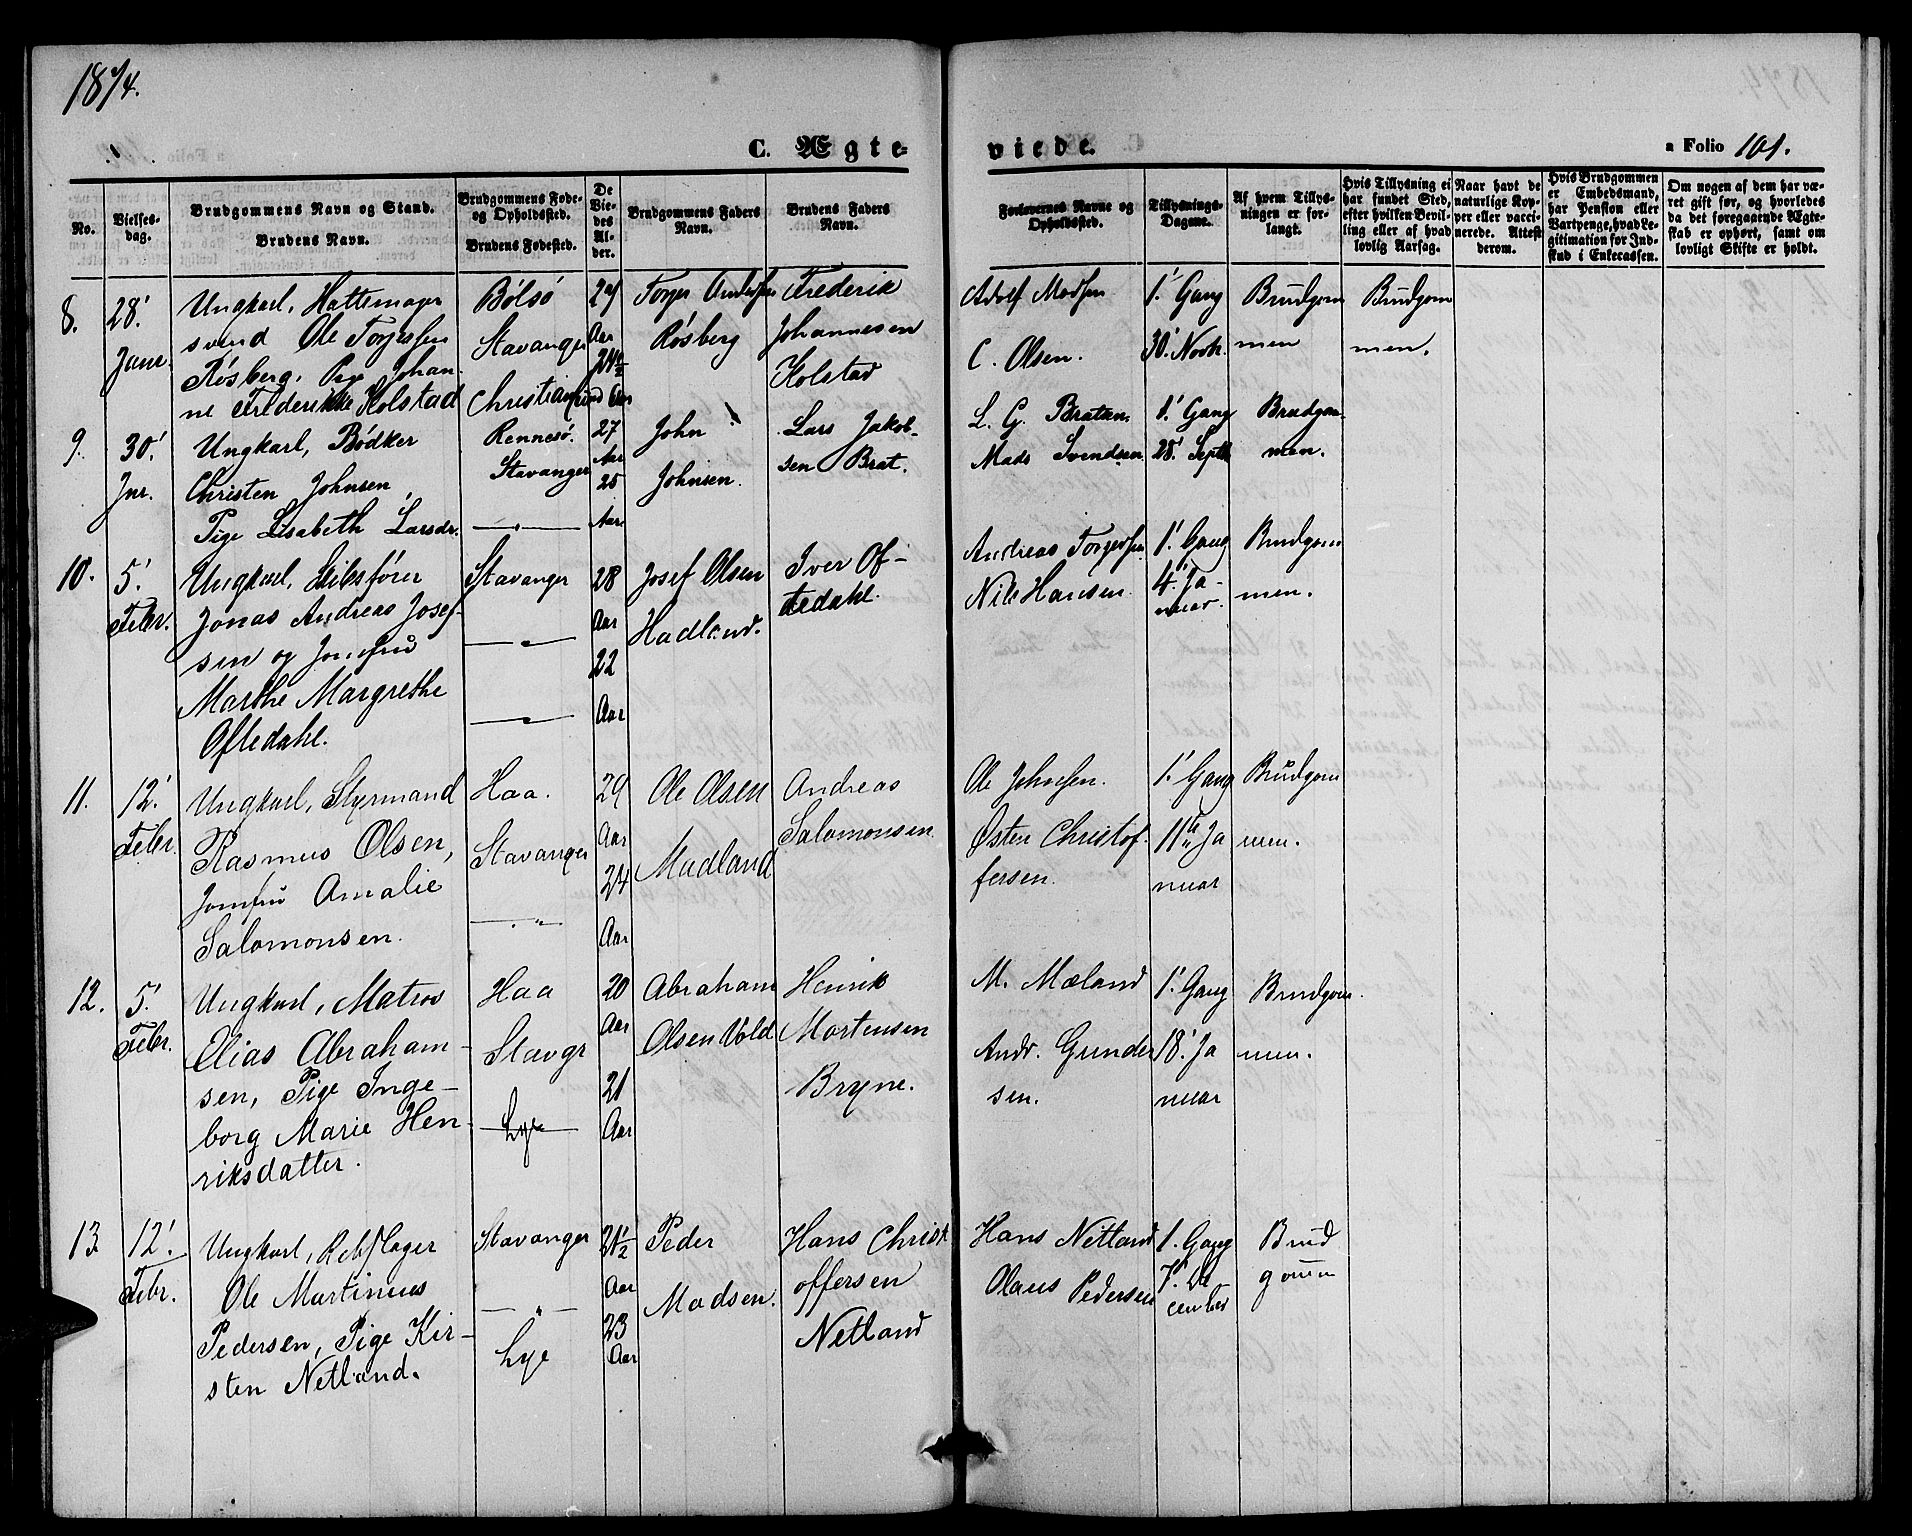 1874.
C. Ægte-
viede.
a Folio 101.
No.
Vielses-
dag.
Brudgommens Navn og Stand.
Brudens Navn.
Brudgommens Føde-
og Opholdssted.
Brudens Fødested.
De
Vie-
des
Al-
der.
Brudgommens Faders
Navn.
Brudens Faders
Navn.
Forlovernes Navne og
Opholdssted.
Tillysnings-
Dagene.
Af hvem Tillys-
ningen er for-
langt.
Hvis Tillysning ei
har fundet Sted,
efter hvilken Bevil-
ling eller af hvad
lovlig Aarsag.
Naar havt de
naturlige Kop-
per eller vacci-
nerede. Attest
derom.
Hvis Brudgommen
er Embedsmand,
har Pension eller
Vartpenge, hvad Le-
gitimation for Ind-
skud i Enkecassen.
Om nogen af dem har væ-
ret gift før, og hvorledes
da det foregaaende Ægte-
skab er ophørt, samt om
lovligt Skifte er holdt.
8.
28'
Janr.
Ungkarl, Hattemager
svend Ole Torjessen
Røsberg, Pige Johan-
ne Frederikke Kolstad
Bølsø
Stavanger
Christiansund
Aar
24 ½
Aar
Torjer Andersen
Røsberg
Frederik
Johannesen
Kolstad
Adolf Madsen
C. Olsen.
1' Gang
30' Novb.
Brudgom
men
Brudgom
men.
9.
30'
Jnr.
Ungkarl, Bødker
Christen Johnsen,
Pige Lisabeth Larsdr.
Rennesø.
Stavanger
—"—
27
Aar
25
Aar
John
Johnsen.
Lars Jakob-
sen Brat.
L. G. Bratan
Mads Svendsen
1' Gang
28' Septb
Brudgom
men.
10.
5'
Febr.
Ungkarl,
Jonas Andreas Josef-
sen og Jomfru
Marthe Margrethe
Oftedahl.
Stavanger
—"—
—"—
28
Aar
22
Aar
Josef Olsen
Hadland.
Iver Of-
tedahl.
Andreas Torgersen
Nils Hansen.
1' Gang
4' Ja-
nuar.
Brudgom
men.
11.
12'
Febr.
Ungkarl, Styrmand
Rasmus Olsen,
Jomfru Amalie
Salomonsen.
Haa.
Stavanger
—"—
29
Aar
24
Aar
Ole Olsen
Madland
Andreas
Salomonsen
Ole Johnsen.
Østen Christof-
fersen.
1' Gang
11te Ja
nuar
Brudgom
men.
12.
5'
Febr.
Ungkarl, Matros
Elias Abraham-
sen, Pige Inge-
borg Marie Hen-
riksdatter.
Haa
Stavgr
Lye
20
Aar
21
Aar
Abraham
Olsen Vold
Henrik
Mortensen
Bryne.
M. Mæland
Andr. Gunder
sen.
1' Gang
18' Ja
nuar
Brudgom
men.
13.
12'
Febr.
Ungkarl, Rebslager
Ole Martinius
Pedersen, Pige Kir-
sten Netland.
Stavanger
—"—
Lye
21½
Aar
23
Aar
Peder
Madsen.
Hans Christ
offersen
Netland
Hans Netland
Olaus Pedersen
1. Gang
7' De
cember
Brud
gomm